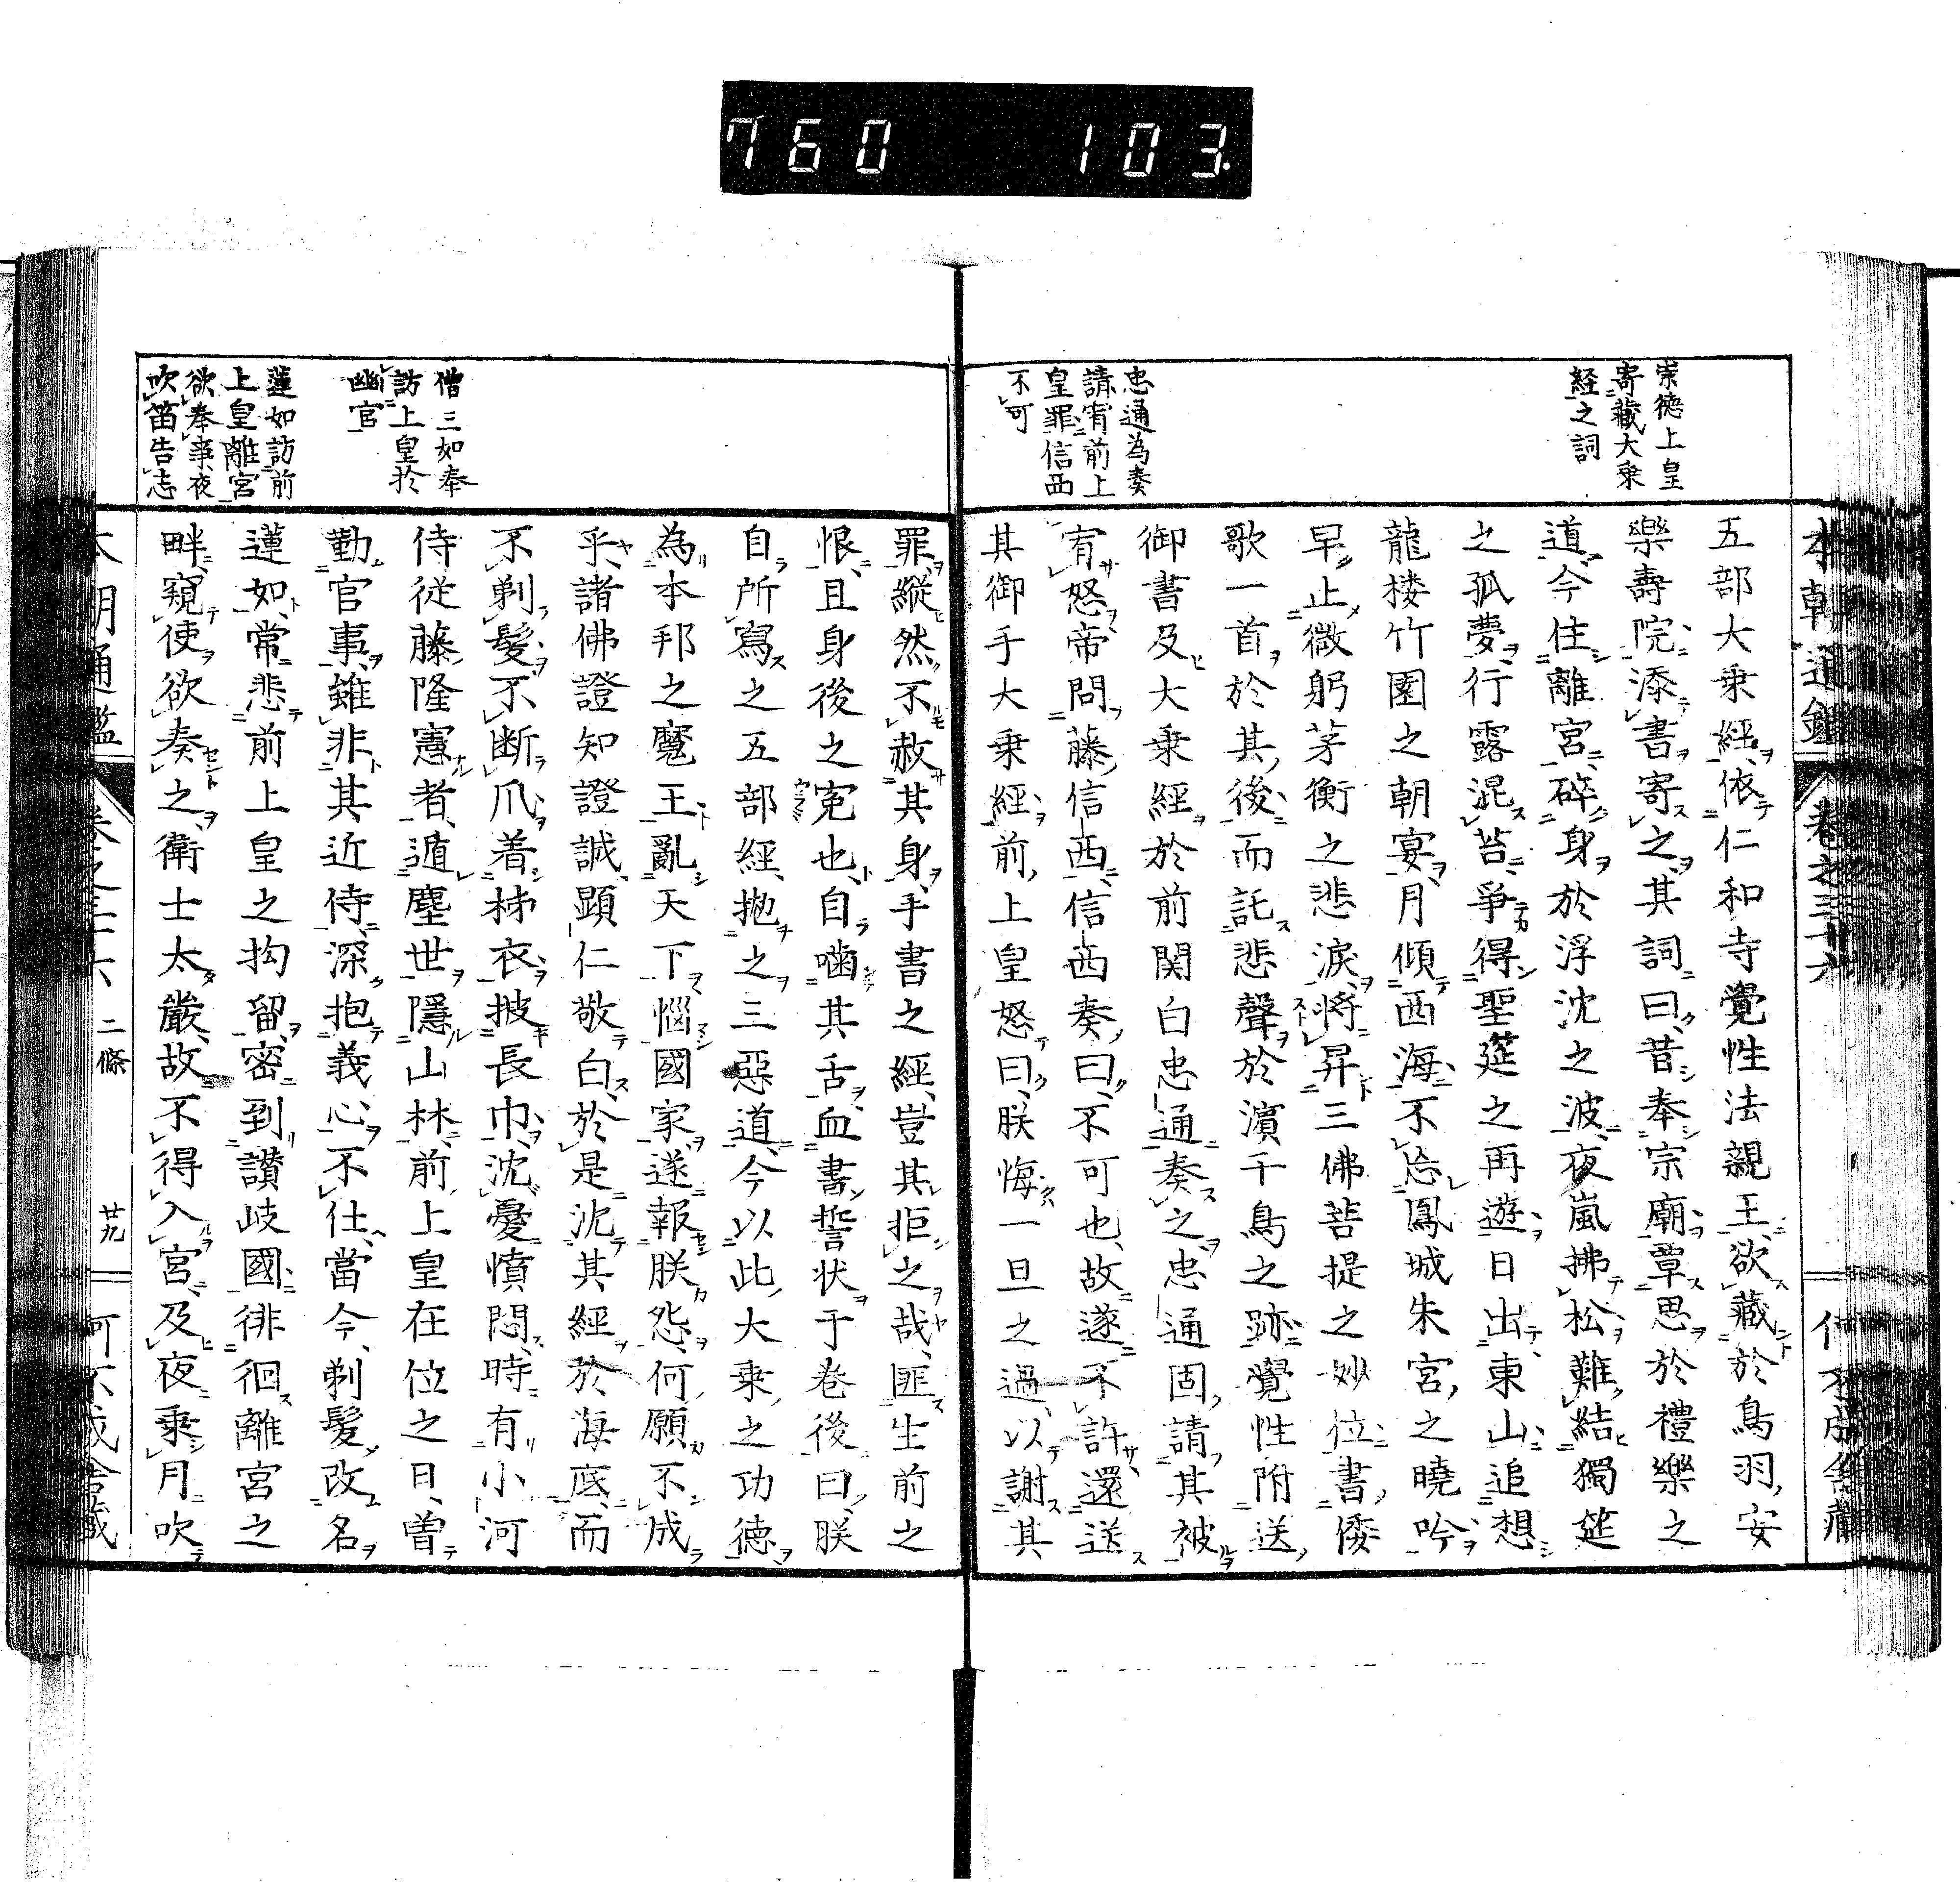 760 103
本朝通鑑 卷之三十六
崇德上皇
寄藏大乗
経之詞
忠通為奏
請宥前上
皇罪信西
不可
五部大乗經、依仁和寺覺性法親王、欲藏於鳥羽安
樂壽院、添書寄之、其詞曰、昔奉宗廟、覃思於禮樂之
道、今住離宮、碎身於浮沈之波、夜嵐拂松、難結獨筵
之孤夢、行露混苔、爭得聖筵之再遊、日出東山、追想
龍楼竹園之朝宴、月傾西海、不忘鳳城朱宮之曉吟、
早止微躬茅衡之悲淚、將昇三佛菩提之妙位、書倭
歌一首於其後、而託悲聲於濱千鳥之跡、覺性附送
御書及大乗經於前関白忠通奏之、忠通固請其被
宥怒、帝問藤信西、信西奏曰、不可也、故遂不許、還送
其御手大乗經、前上皇怒曰、朕悔一旦之過、以謝其
僧三如奉
訪上皇於
幽宮
蓮如訪前
上皇離宮
欲奉事夜
吹笛告志
罪、縱然不赦其身、手書之經、豈其拒之哉、匪生前之
恨、且身後之寃也、自嚙其舌、血書誓状于巻後曰、朕
自所寫之五部經、抛之三惡道、今以此大乗之功德、
為本邦之魔王、亂天下、惱國家、遂報朕怨、何願不成
乎、諸佛證知證誠、顕仁敬白、於是沈其經於海底、而
不剃髮、不断爪、着柹衣、披長巾、沈憂憤悶、時有小河
侍従藤隆憲者、遁塵世、隱山林、前上皇在位之日、曽
勤官事、雖非其近侍、深抱義心、不仕當今、剃髮、改名
蓮如、常悲前上皇之拘留、密到讃岐國、徘徊離宮之
畔、窺使欲奏之、衛士太嚴、故不得入宮、及夜乘月吹
二條 廿九